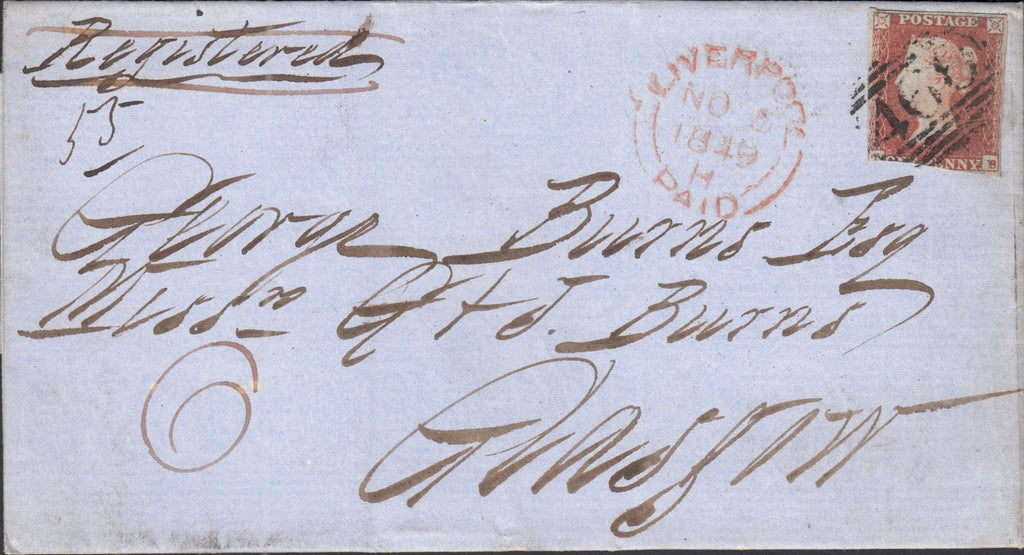 Registered
55
LIVERPOOL
NO 5
1849
H
PAID
POSTAGE
466
PENNY
B
George Burns Esq
Messrs G & J. Burns
6
Glasgow